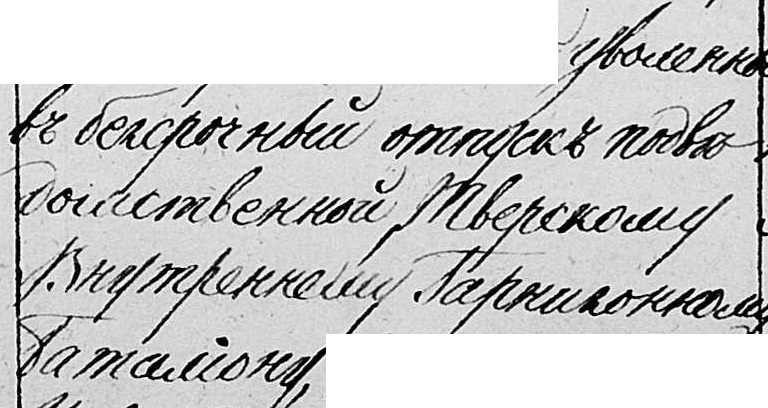 уволенно
въ безсрочный отпускъ подвѣ
домственной Тверскому
Внутреннему Гарнизонному
баталіону,